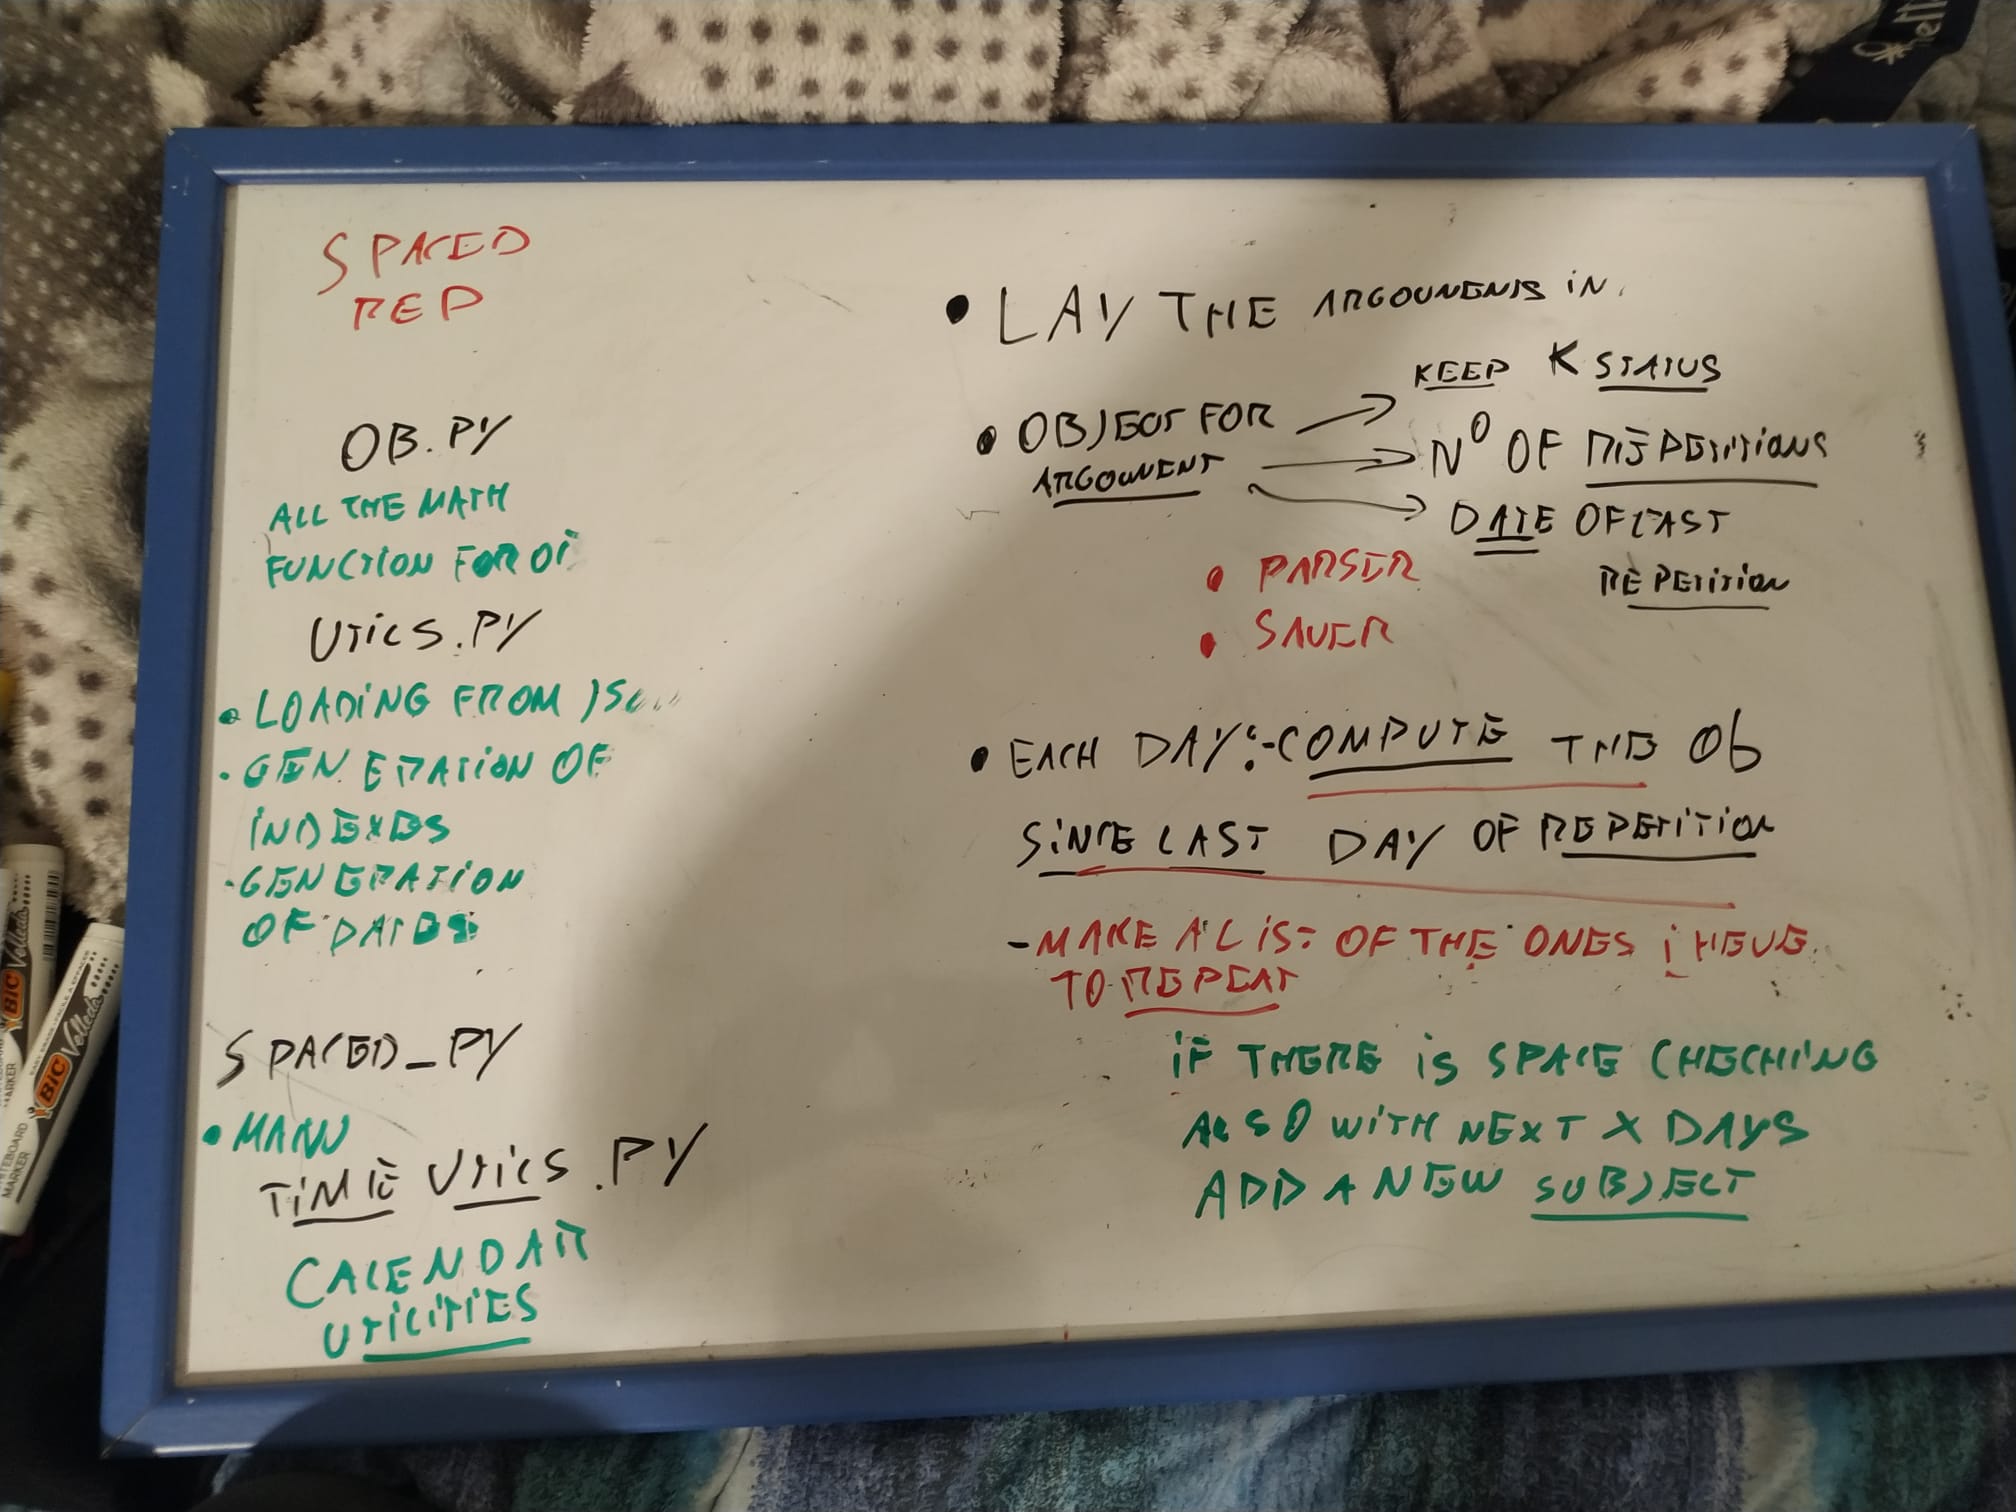 SPACED
REP
OB.PY
ALL THE MATH
FUNCTION FOR OF
UTILS.PY
• LOADING FROM JSO
• GENERATION OF
INDEXES
• GENERATION
OF DATES
SPACED_PY
• MAIN
TIME UTILS.PY
CALENDAR
UTILITIES
• LAY THE ARGOUMENTS IN
• OBJECT FOR
ARGOUMENT
KEEP K STATUS
N° OF REPETITIONS
DATE OF LAST
REPETITION
• PARSER
• SAVER
• EACH DAY: - COMPUTE THE Ob
SINCE LAST DAY OF REPETITION
- MAKE A LIST OF THE ONES I HEVE
TO REPEAT
IF THERE IS SPACE CHECHING
ALSO WITH NEXT X DAYS
ADD A NEW SUBJECT
BIC Velleda
WHITEBOARD
MARKER
BIC Velleda
MARKER